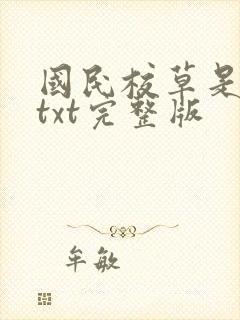 國民校草是
txt完整版
牟敏